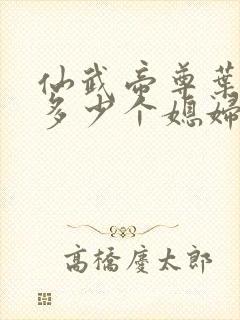 仙武帝尊葉
多少个媳婦
高橋慶太郎